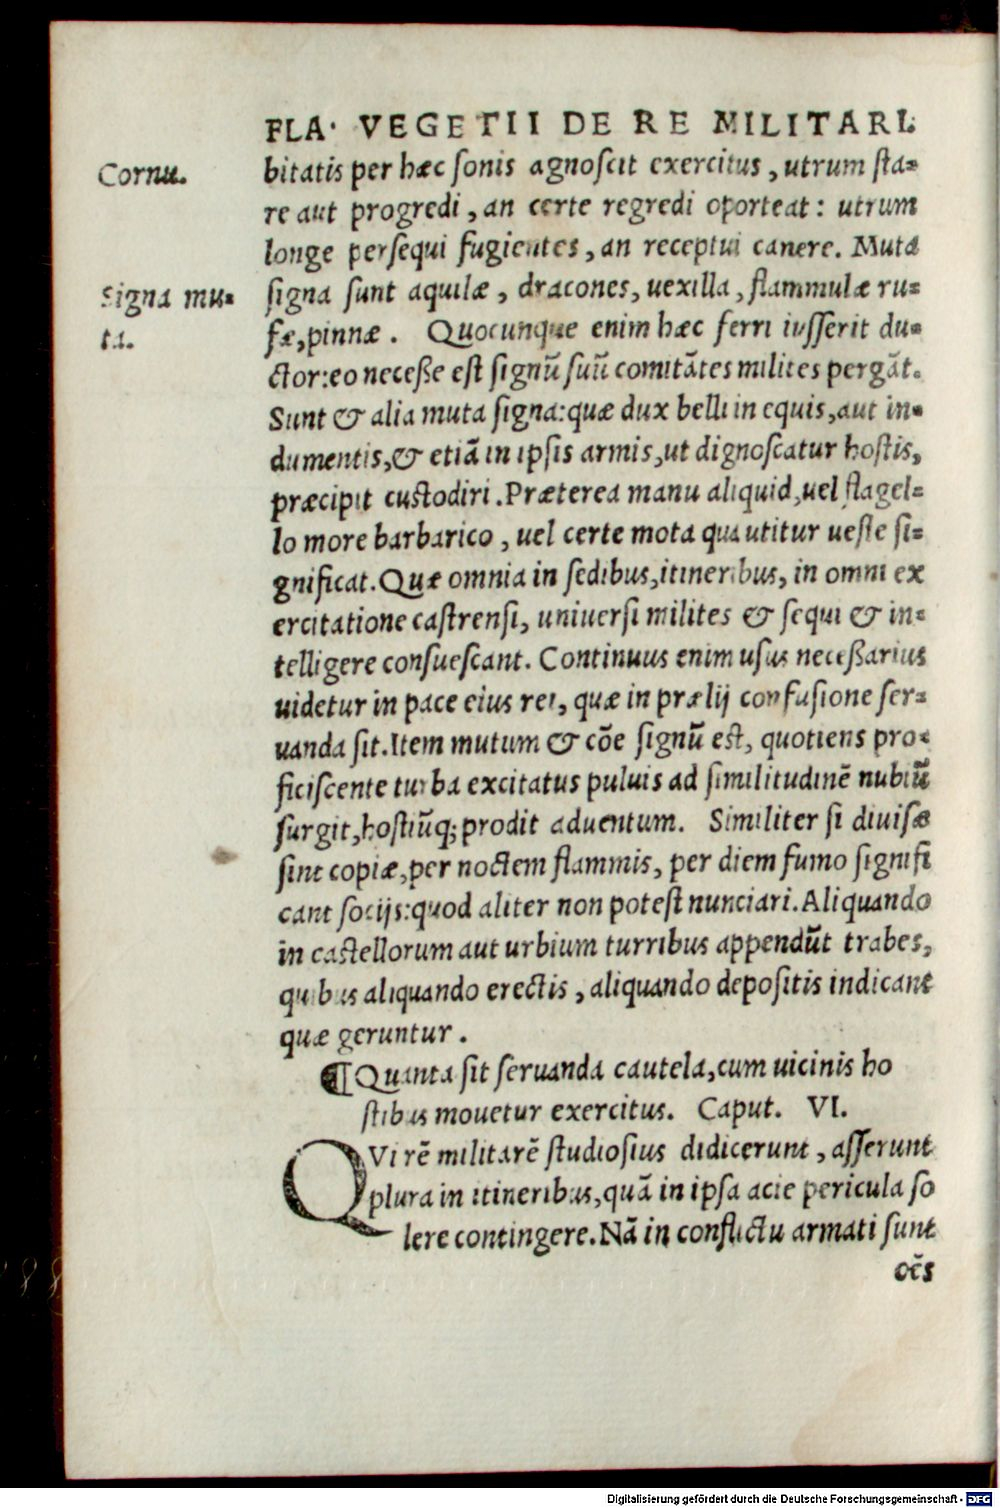 FLA. VEGETII DE RE MILITARI.
Cornu.
bitatis per hæc ſonis agnoſcit exercitus, utrum ſta-
re aut progredi, an certe regredi oporteat: utrum
longe perſequi fugientes, an receptui canere. Muta
Signa mu-
ta.
ſigna ſunt aquilæ, dracones, uexilla, flammulæ ru-
fæ, pinnæ. Quocunque enim hæc ferri iuſſerit du-
ctor: eo neceße eſt ſignū ſuū comitātes milites pergāt.
Sunt & alia muta ſigna: quæ dux belli in equis, aut in-
dumentis, & etiā in ipſis armis, ut dignoſcatur hoſtis,
præcipit cuſtodiri. Præterea manu aliquid, uel flagel-
lo more barbarico, uel certe mota qua utitur ueſte ſi-
gnificat. Quæ omnia in ſedibus, itineribus, in omni ex
ercitatione caſtrenſi, uniuerſi milites & ſequi & in-
telligere conſueſcant. Continuus enim uſus neceßarius
uidetur in pace eius rei, quæ in prælij confuſione ſer-
uanda ſit. Item mutum & cōe ſignū eſt, quotiens pro-
ficiſcente turba excitatus puluis ad ſimilitudinē nubiū
ſurgit, hoſtiūq; prodit aduentum. Similiter ſi diuiſæ
ſint copiæ, per noctem flammis, per diem fumo ſignifi
cant ſocijs: quod aliter non poteſt nunciari. Aliquando
in caſtellorum aut urbium turribus appendūt trabes,
quibus aliquando erectis, aliquando depoſitis indicant
quæ geruntur.
¶ Quanta ſit ſeruanda cautela, cum uicinis ho
ſtibus mouetur exercitus. Caput. VI.
QVi rē militarē ſtudioſius didicerunt, aſſerunt
plura in itineribus, quā in ipſa acie pericula ſo
lere contingere. Nā in conflictu armati ſunt
oēs
Digitalisierung gefördert durch die Deutsche Forschungsgemeinschaft - DFG